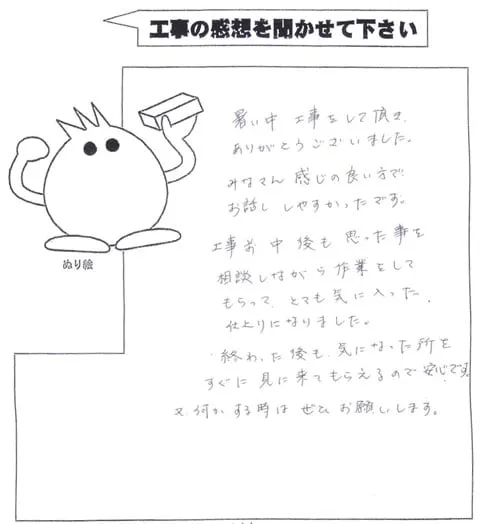 工事の感想を聞かせて下さい
ぬり絵
暑い中 工事をして頂き、
ありがとうございました。
みなさん 感じの良い方で
お話し しやすかったです。
工事前 中 後も 思った事を
相談しながら 作業をして
もらって、とても気に入った、
仕上りになりました。
終わった後も、気になった所を
すぐに 見に来てもらえるので 安心です。
又、何かする時は ぜひ お願いします。